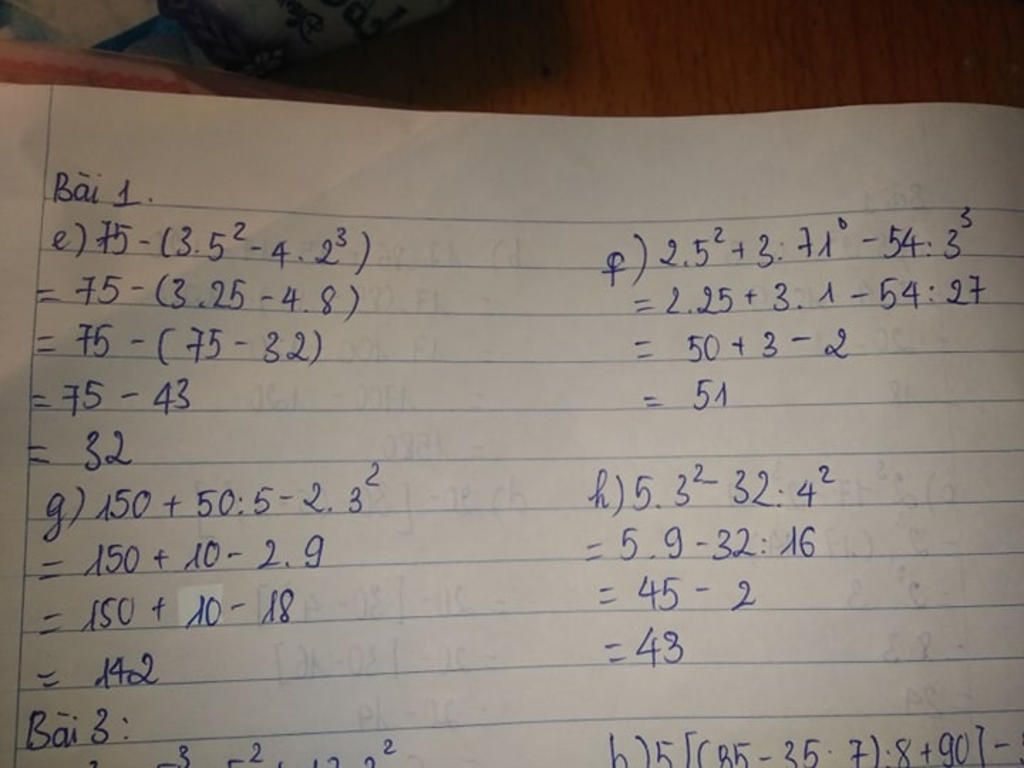 Bài 1.
e) 75 - (3.5² - 4.2³)
= 75 - (3.25 - 4.8)
= 75 - (75 - 32)
= 75 - 43
= 32
f) 2.5² + 3:71⁰ - 54:3³
= 2.25 + 3.1 - 54:27
= 50 + 3 - 2
= 51
g) 150 + 50:5 - 2.3²
= 150 + 10 - 2.9
= 150 + 10 - 18
= 142
h) 5.3² - 32:4²
= 5.9 - 32:16
= 45 - 2
= 43
Bài 3:
b) 5[(85 - 35:7):8 + 90] -